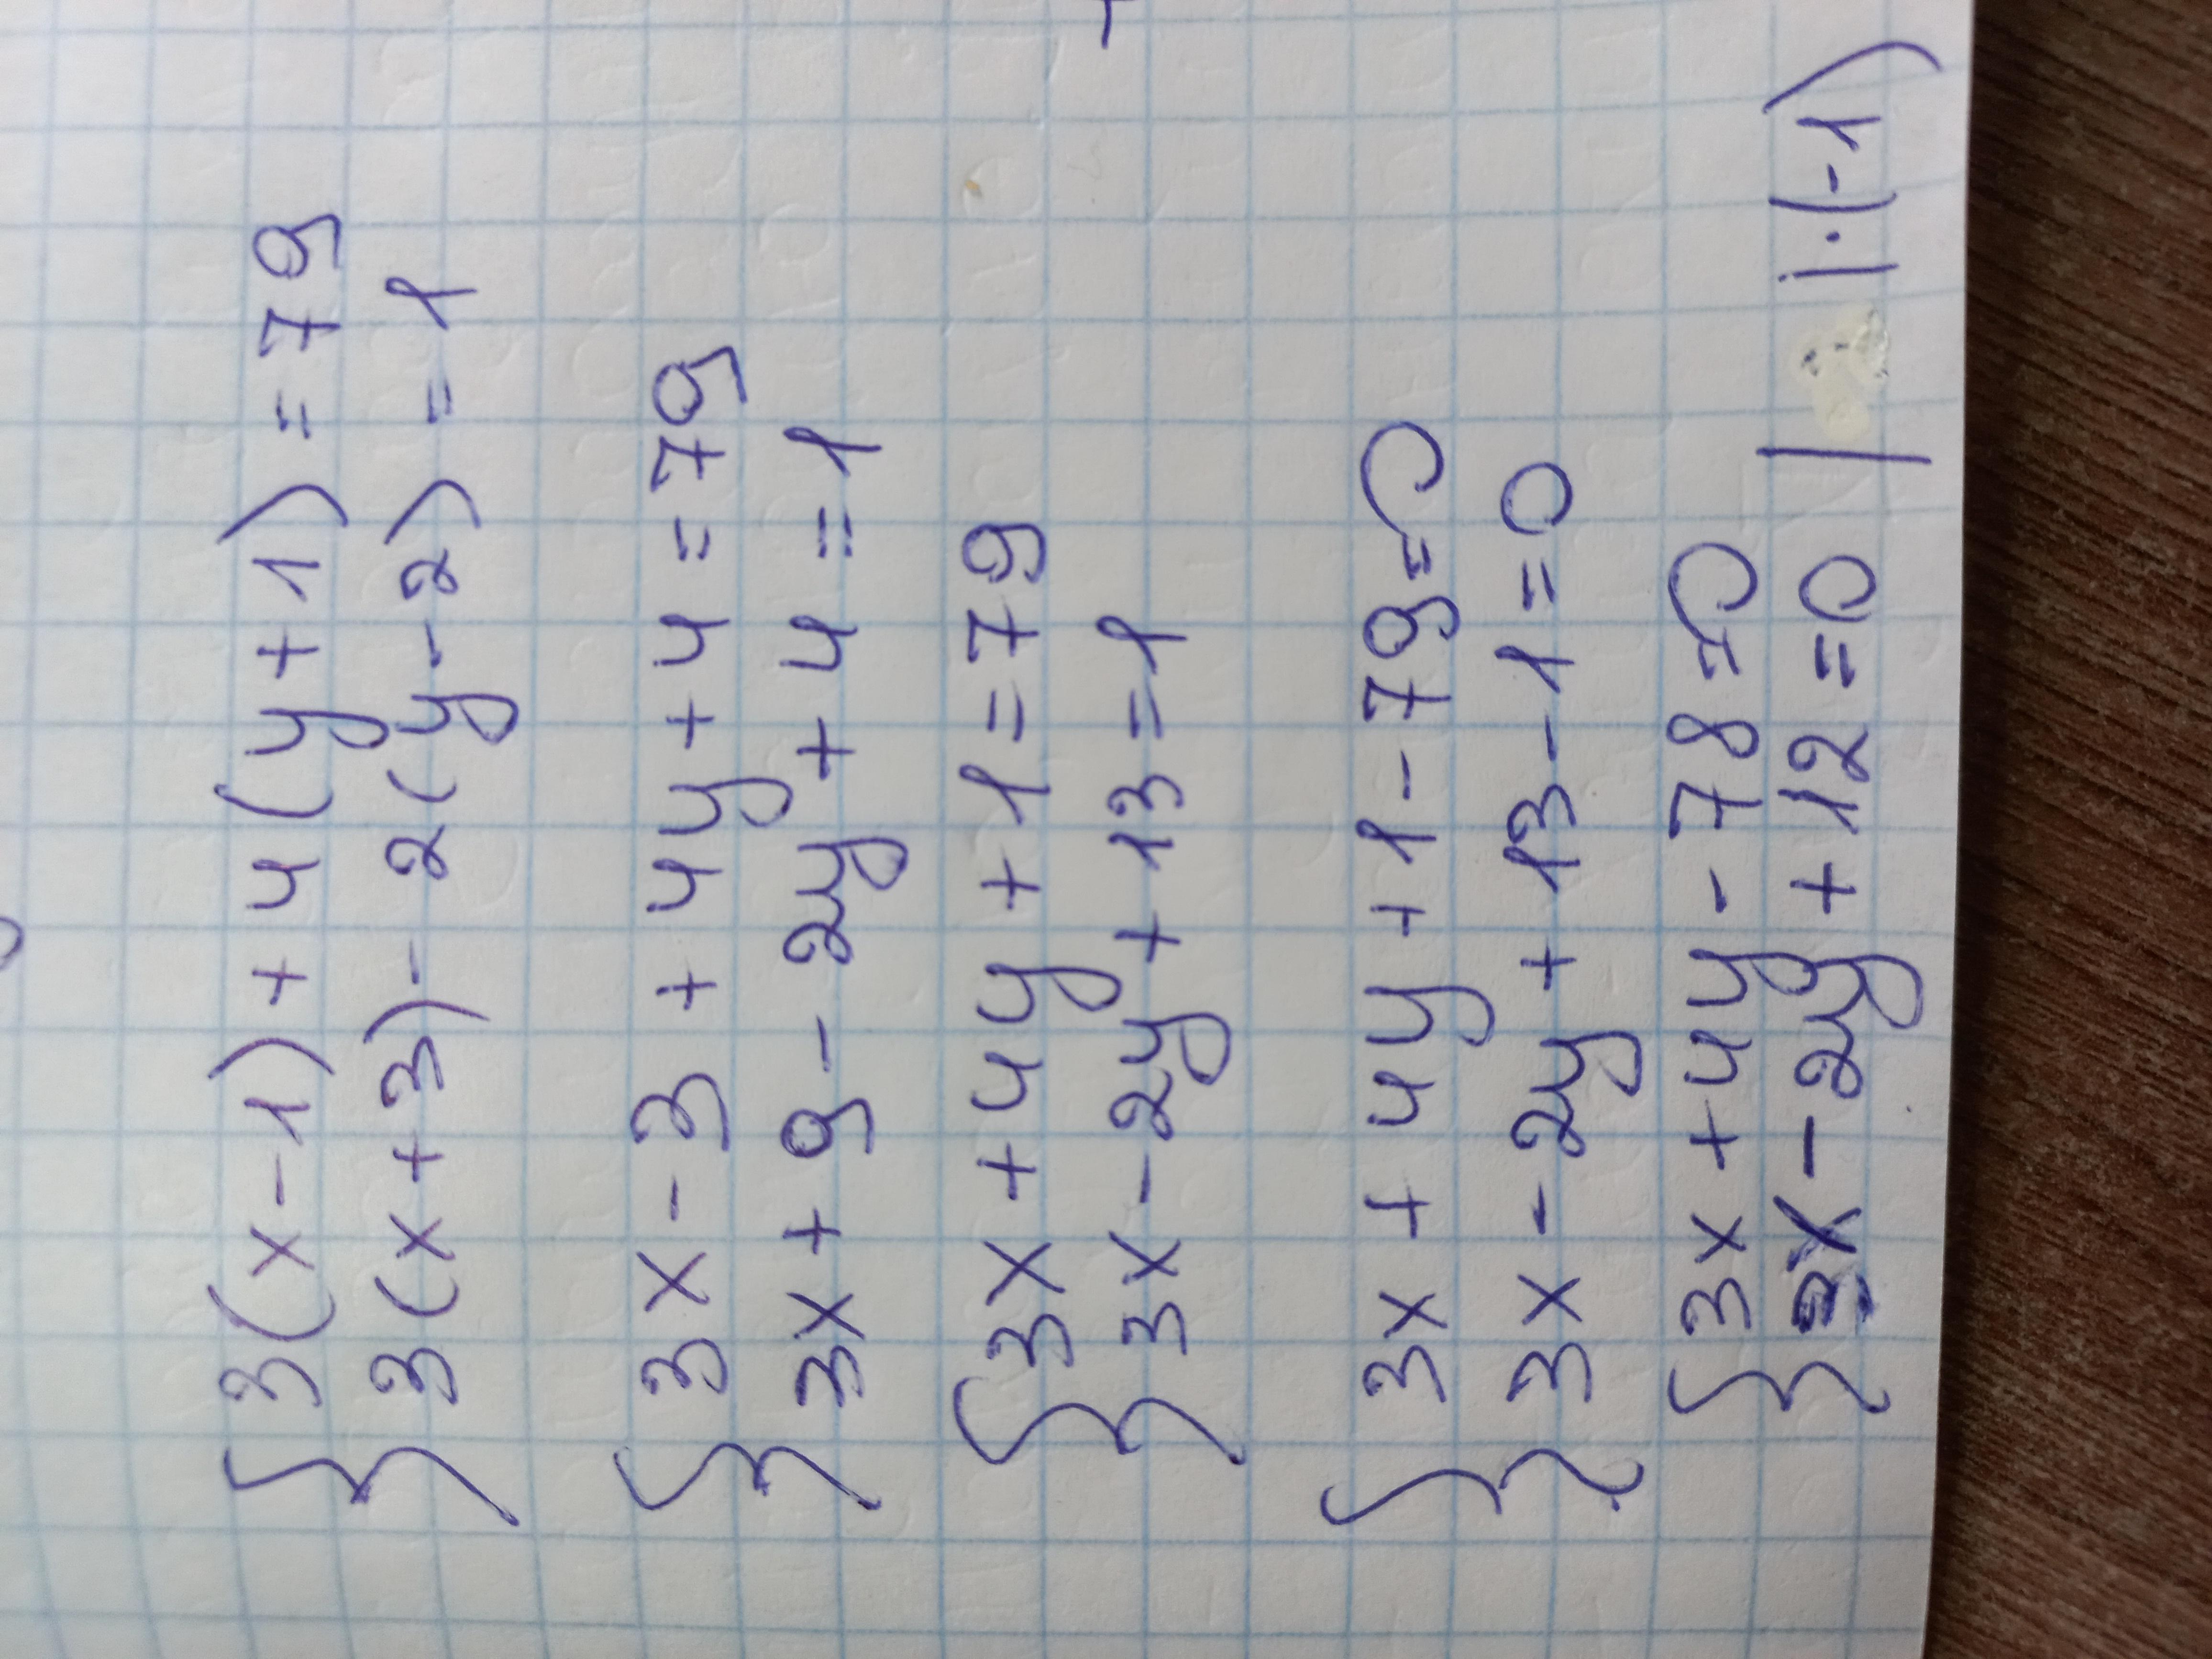 3(x-1)+4(y+1)=79
3(x+3)-2(y-2)=1
3x-3+4y+4=79
3x+9-2y+4=1
3x+4y+1=79
3x-2y+13=1
3x+4y+1-79=0
3x-2y+13-1=0
3x+4y-78=0
3x-2y+12=0 | |·(-1)